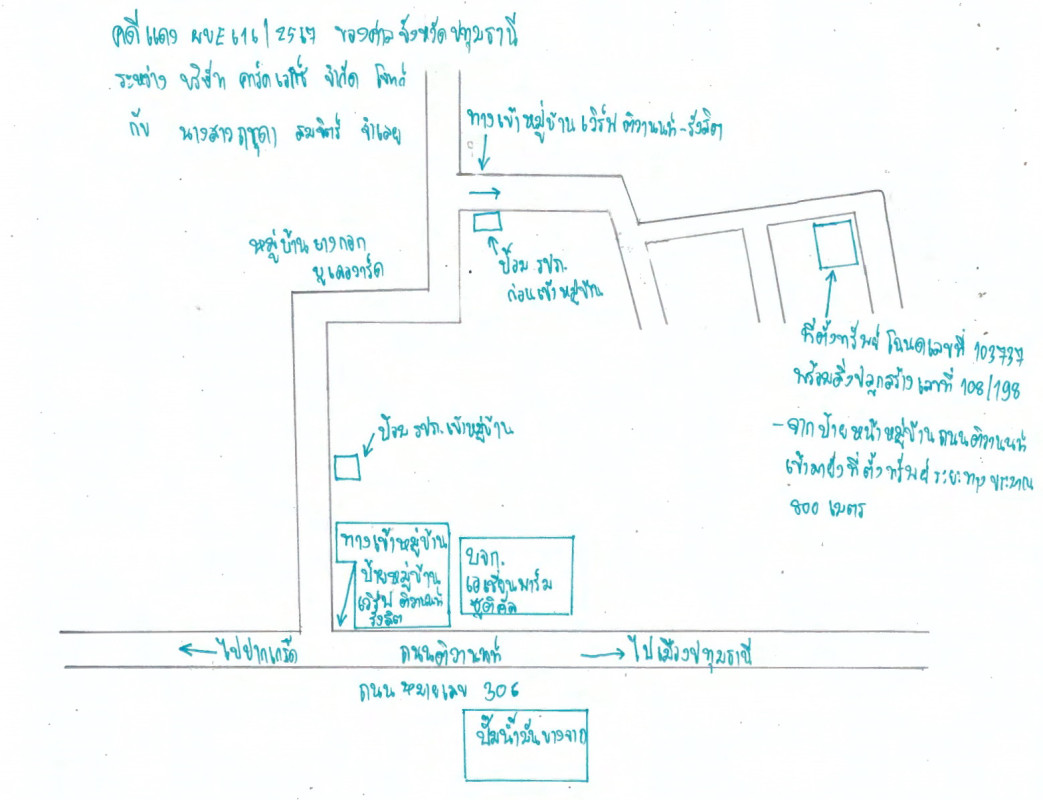 คดีแดง ผบE616/2567 ของศาลจังหวัดปทุมธานี
ระหว่าง บริษัท คาร์ด เวิร์ซ จำกัด โจทก์
กับ นางสาว สมจิตร์ จำเลย
ทางเข้าหมู่บ้าน เวิร์ฟ ติวานนท์-รังสิต
หมู่บ้าน บางกอก
บูเลอวาร์ด
ป้อม รปภ.
ก่อนเข้าหมู่บ้าน
ที่ตั้งทรัพย์ โฉนดเลขที่ 103737
พร้อมสิ่งปลูกสร้าง เลขที่ 108/198
- จากป้ายหน้าหมู่บ้าน ถนนติวานนท์
เข้ามายังที่ตั้งทรัพย์ ระยะทางประมาณ
800 เมตร
ป้อม รปภ. เข้าหมู่บ้าน
ทางเข้าหมู่บ้าน
ป้ายหมู่บ้าน
เวิร์ฟ ติวานนท์
รังสิต
บจก.
เอเชี่ยนฟาร์ม
ซูติคัล
ไปปากเกร็ด
ถนนติวานนท์
ไปเมืองปทุมธานี
ถนน หมายเลข 306
ปั๊มน้ำมันบางจาก